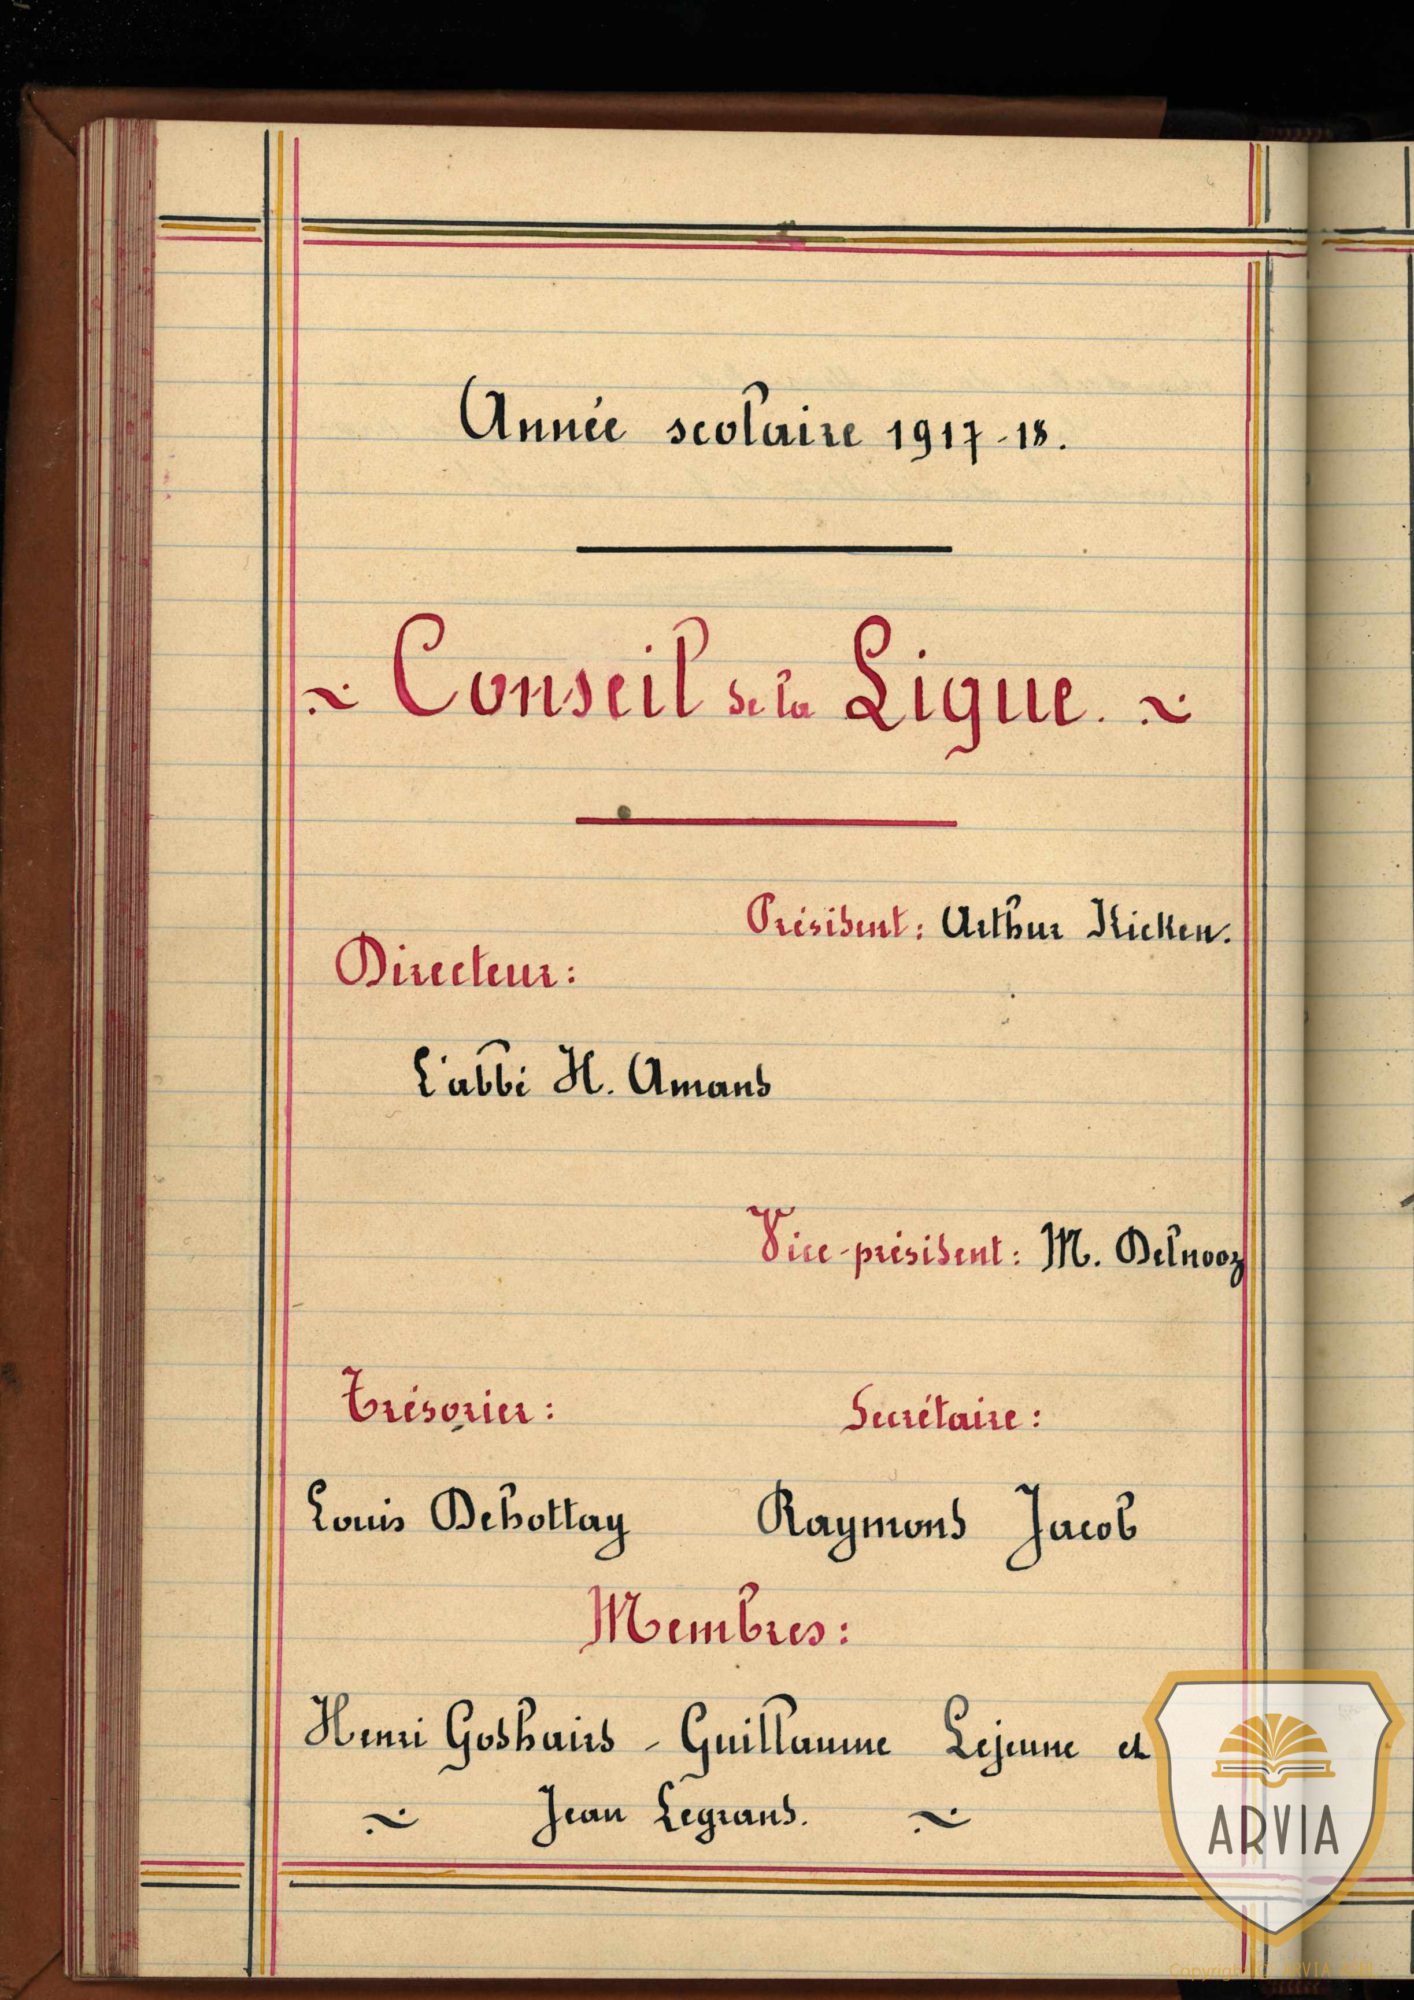 Année scolaire 1917-18.
~ Conseil de la Ligue. ~
Président: Arthur Kicken.
Directeur:
L'abbé H. Amand
Vice-président: M. Delnooz
Trésorier: Secrétaire:
Louis Debottay Raymond Jacob
Membres:
Henri Godhaird - Guillaume Lejeune et
~ Jean Legrand. ~
ARVIA
Copyright ARVIA